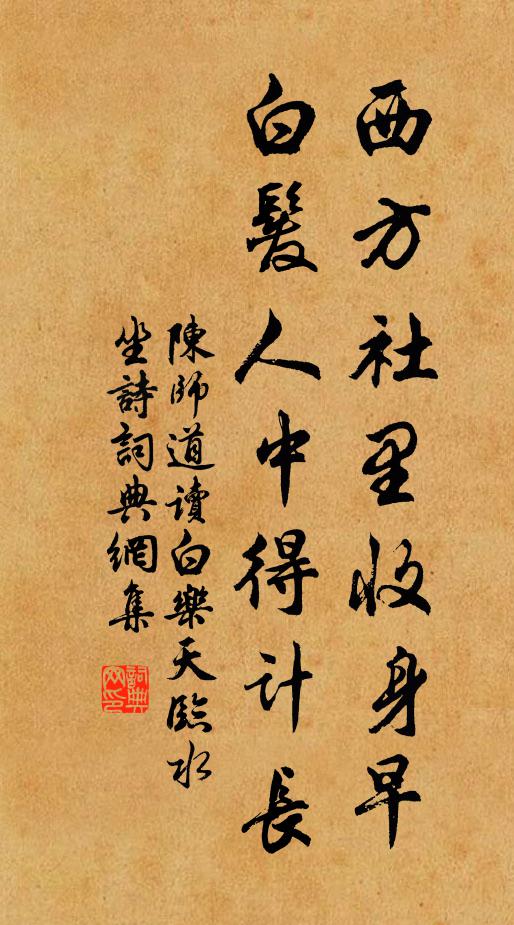 西方社里收身早
白髮人中得計長
陳師道讀白樂天臨水
坐詩詞典網集
詞典網印